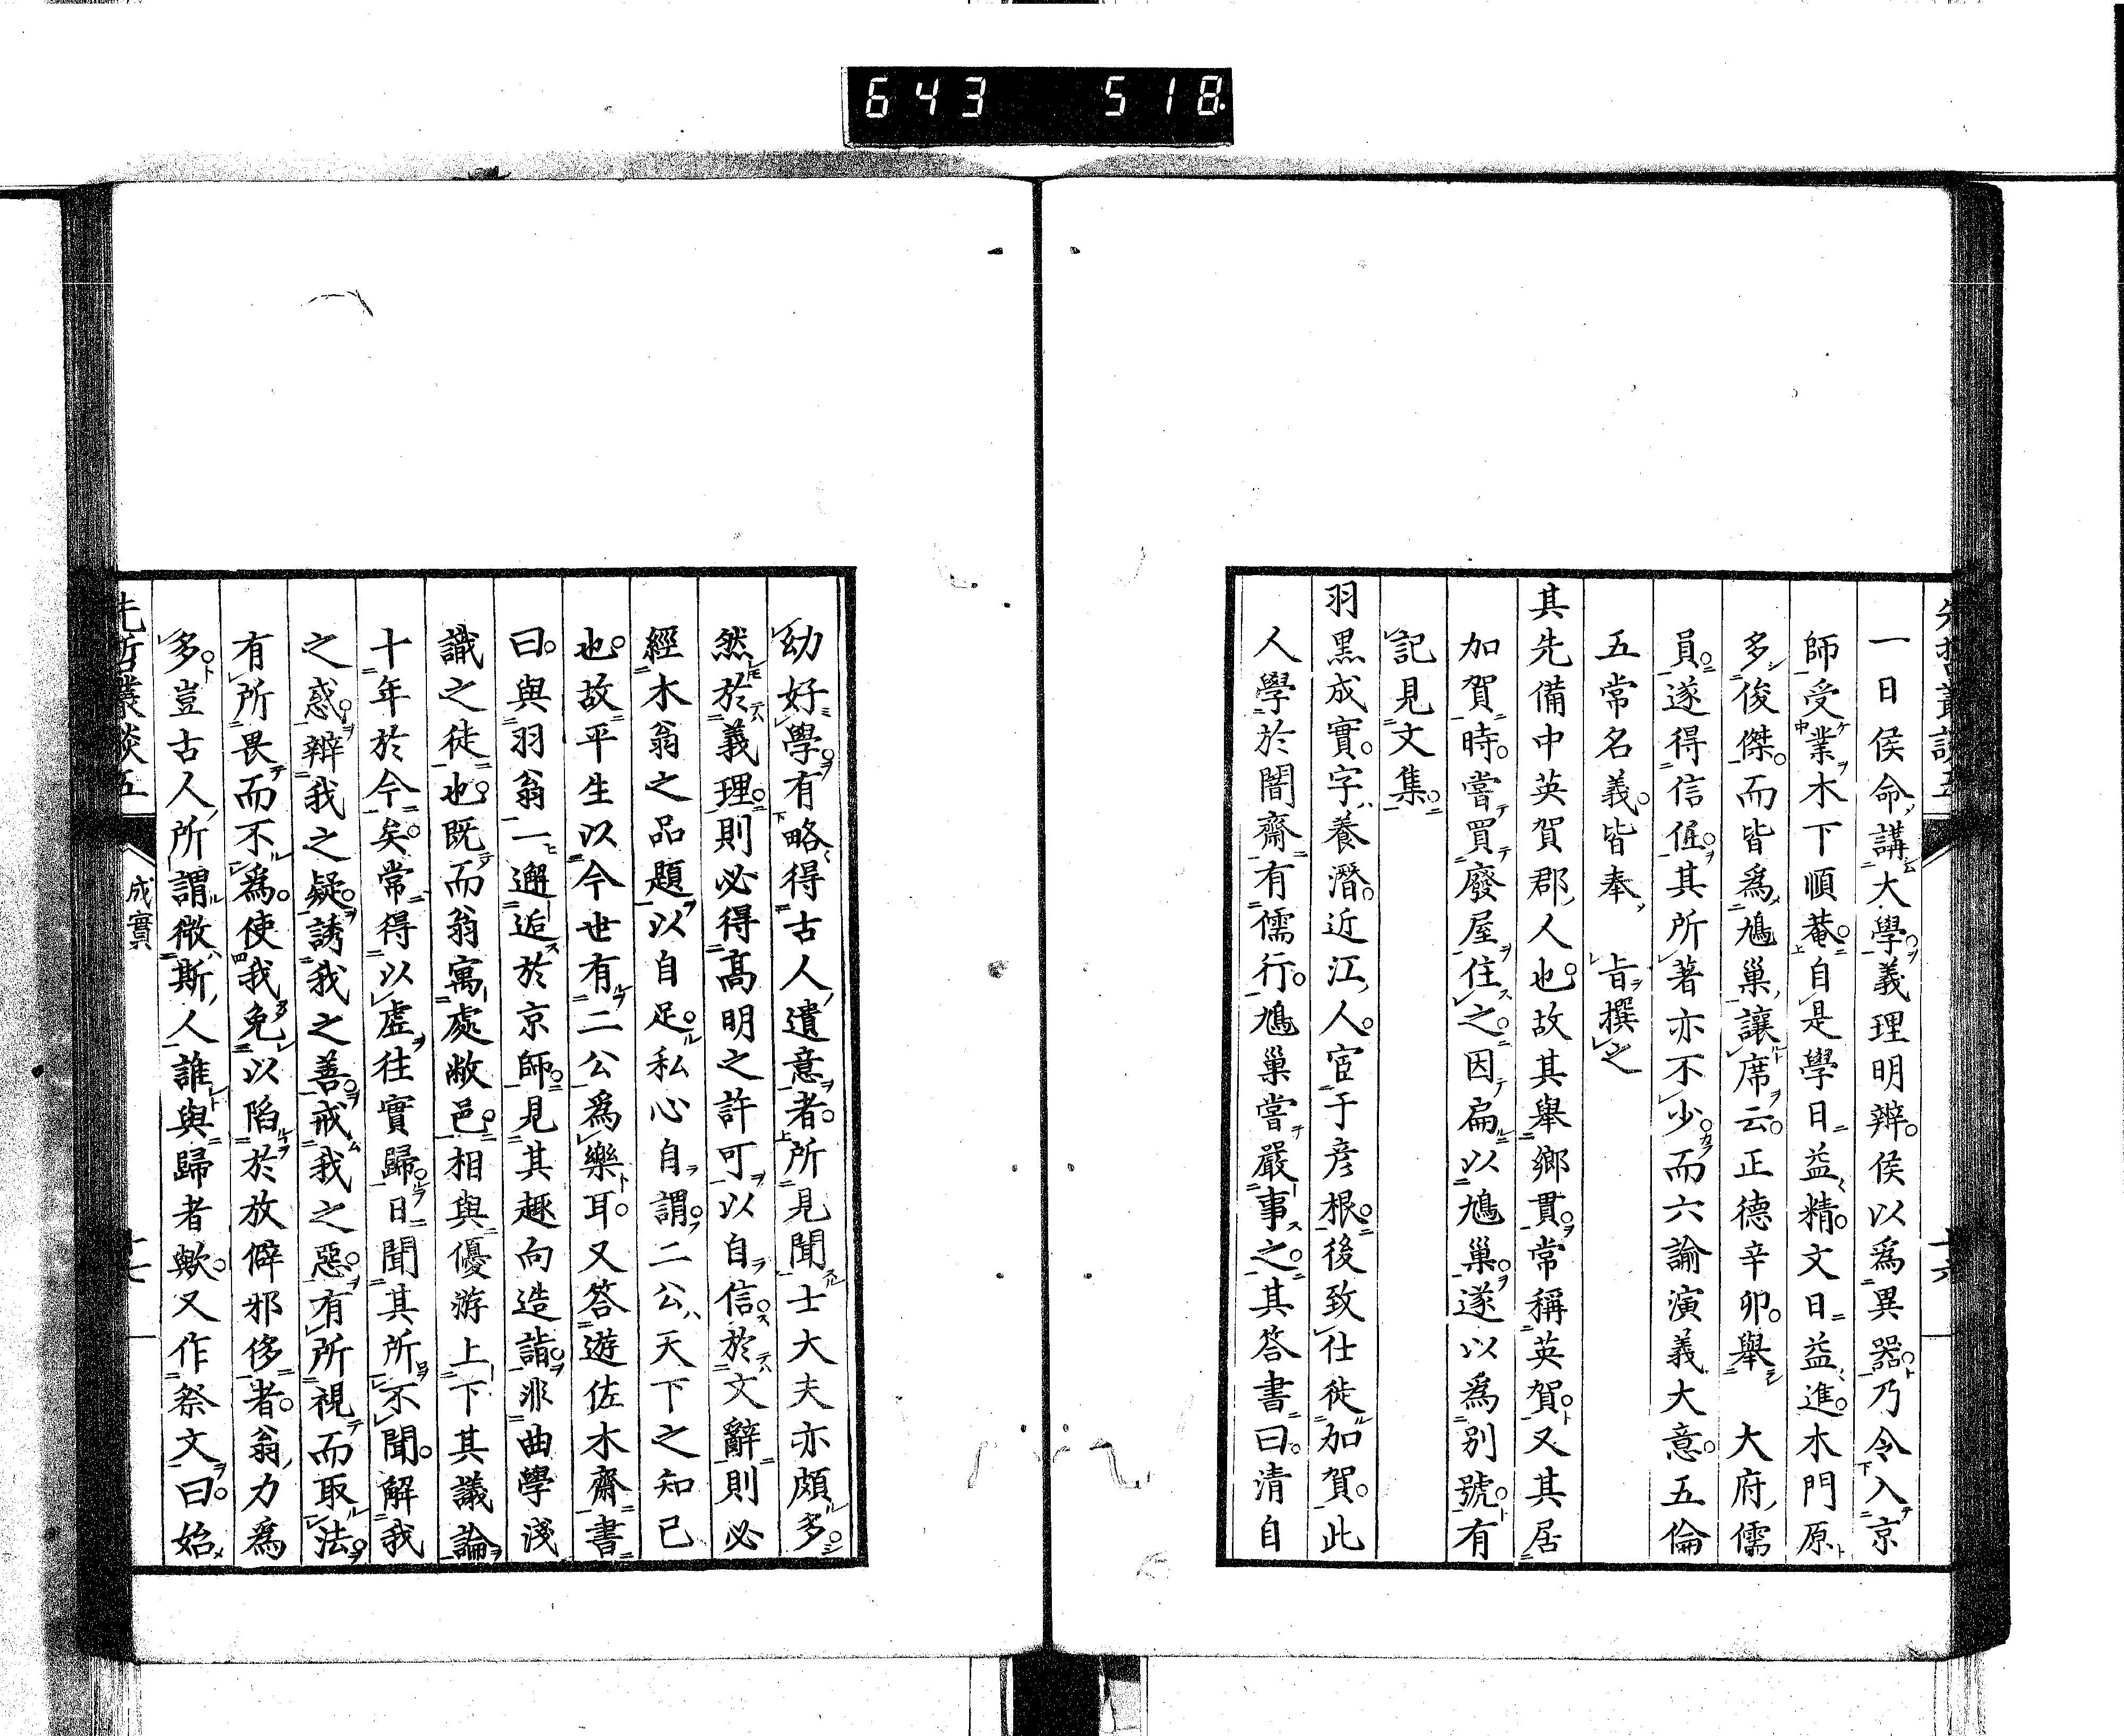 643 518
先哲叢談五
十六
一日侯命講大學義理明辨侯以爲異器乃令入京
師受業木下順菴自是學日益精文日益進木門原
多俊傑而皆爲鳩巢讓席云正德辛卯舉　大府儒
員遂得信任其所著亦不少而六諭演義大意五倫
五常名義皆奉　旨撰之
其先備中英賀郡人也故其舉鄉貫常稱英賀又其居
加賀時嘗買廢屋住之因扁以鳩巢遂以爲別號有
記見文集
羽黑成實字養潛近江人宦于彦根後致仕徙加賀此
人學於闇齋有儒行鳩巢嘗嚴事之其答書曰清自
幼好學有略得古人遺意者所見聞士大夫亦頗多
然於義理則必得高明之許可以自信於文辭則必
經木翁之品題以自足私心自謂二公天下之知己
也故平生以今世有二公爲樂耳又答遊佐木齋書
曰與羽翁一邂逅於京師見其趣向造詣非曲學淺
識之徒也既而翁寓處敝邑相與優游上下其議論
十年於今矣常得以虛往實歸日聞其所不聞解我
之惑辨我之疑誘我之善戒我之惡有所視而取法
有所畏而不爲使我免以陷於放僻邪侈者翁力爲
多豈古人所謂微斯人誰與歸者歟又作祭文曰始
先哲叢談五
成實
十七